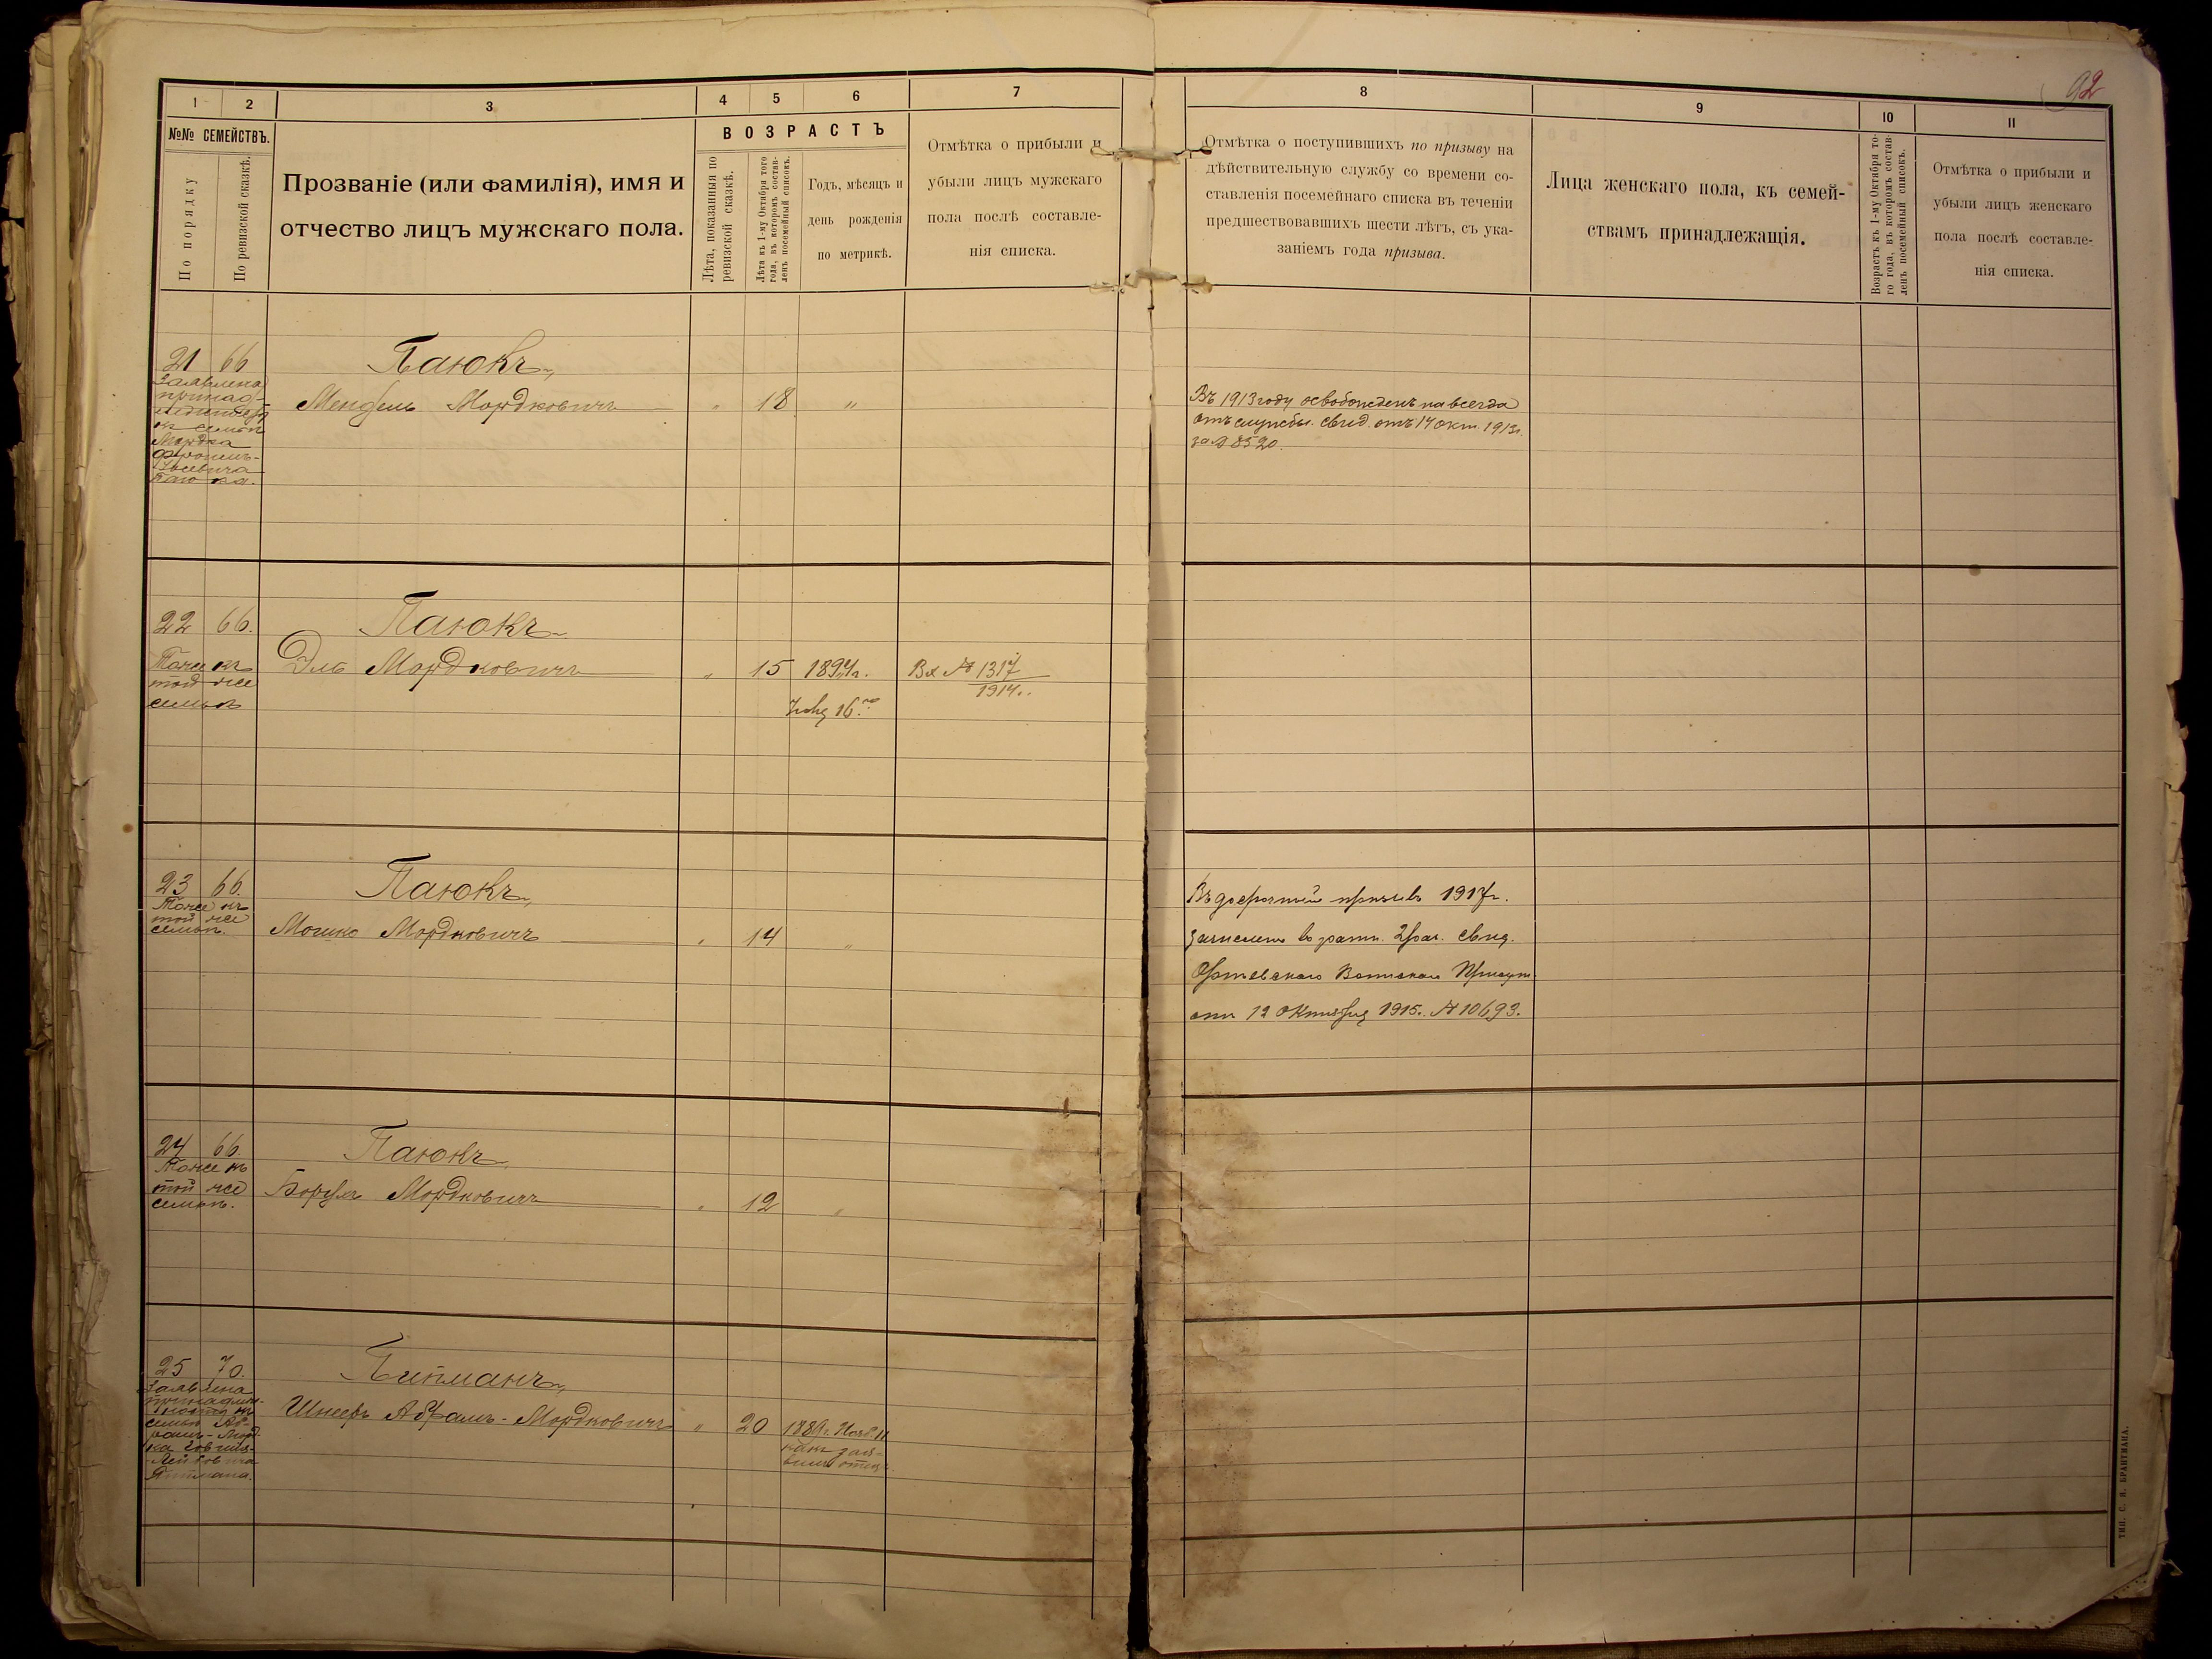 92
1 2 3 4 5 6 7 8 9 10 11
№№ СЕМЕЙСТВЪ.
По порядку
По ревизской сказкѣ.
Прозваніе (или фамилія), имя и
отчество лицъ мужскаго пола.
ВОЗРАСТЪ
Лѣта, показанныя по
ревизской сказкѣ.
Лѣта къ 1-му Октября того
года, въ которомъ состав-
ленъ посемейный списокъ.
Годъ, мѣсяцъ и
день рожденія
по метрикѣ.
Отмѣтка о прибыли и
убыли лицъ мужскаго
пола послѣ составле-
нія списка.
Отмѣтка о поступившихъ по призыву на
дѣйствительную службу со времени со-
ставленія посемейнаго списка въ теченіи
предшествовавшихъ шести лѣтъ, съ ука-
заніемъ года призыва.
Лица женскаго пола, къ семей-
ствамъ принадлежащія.
Возрастъ къ 1-му Октября то-
го года, въ которомъ состав-
ленъ посемейный списокъ.
Отмѣтка о прибыли и
убыли лицъ женскаго
пола послѣ составле-
нія списка.
21 66
Паюкъ
Мендель Мордковичъ " 18 "
къ семьѣ
Мордка
Паюка.
Въ 1913 году освобожденъ навсегда
отъ службы. свид. отъ 14 окт. 1913г.
за № 8520.
22 66.
Паюкъ
Тоже къ
той же
семьѣ
Эль Мордковичъ " 15 1894г.
16
Вх № 1317
1914.
23 66.
Паюкъ
Тоже къ
той же
семьѣ.
Мошко Мордковичъ " 14 "
Въ досрочный призывъ 1917г.
зачисленъ въ ратн. 2 раз. свид.
Воинскаго Присут.
отъ 12 Октября 1915. № 10693.
24 66.
Паюкъ
Тоже къ
той же
семьѣ.
Борухъ Мордковичъ " 12 "
25 70.
Шнееръ Абрамъ-Мордковичъ " 20 1889г. Нояб. 11
какъ зая-
вилъ отецъ.
семьѣ Аб-
рамъ-Морд-
ка
ТИП. С. Я. БРАНТМАНА.